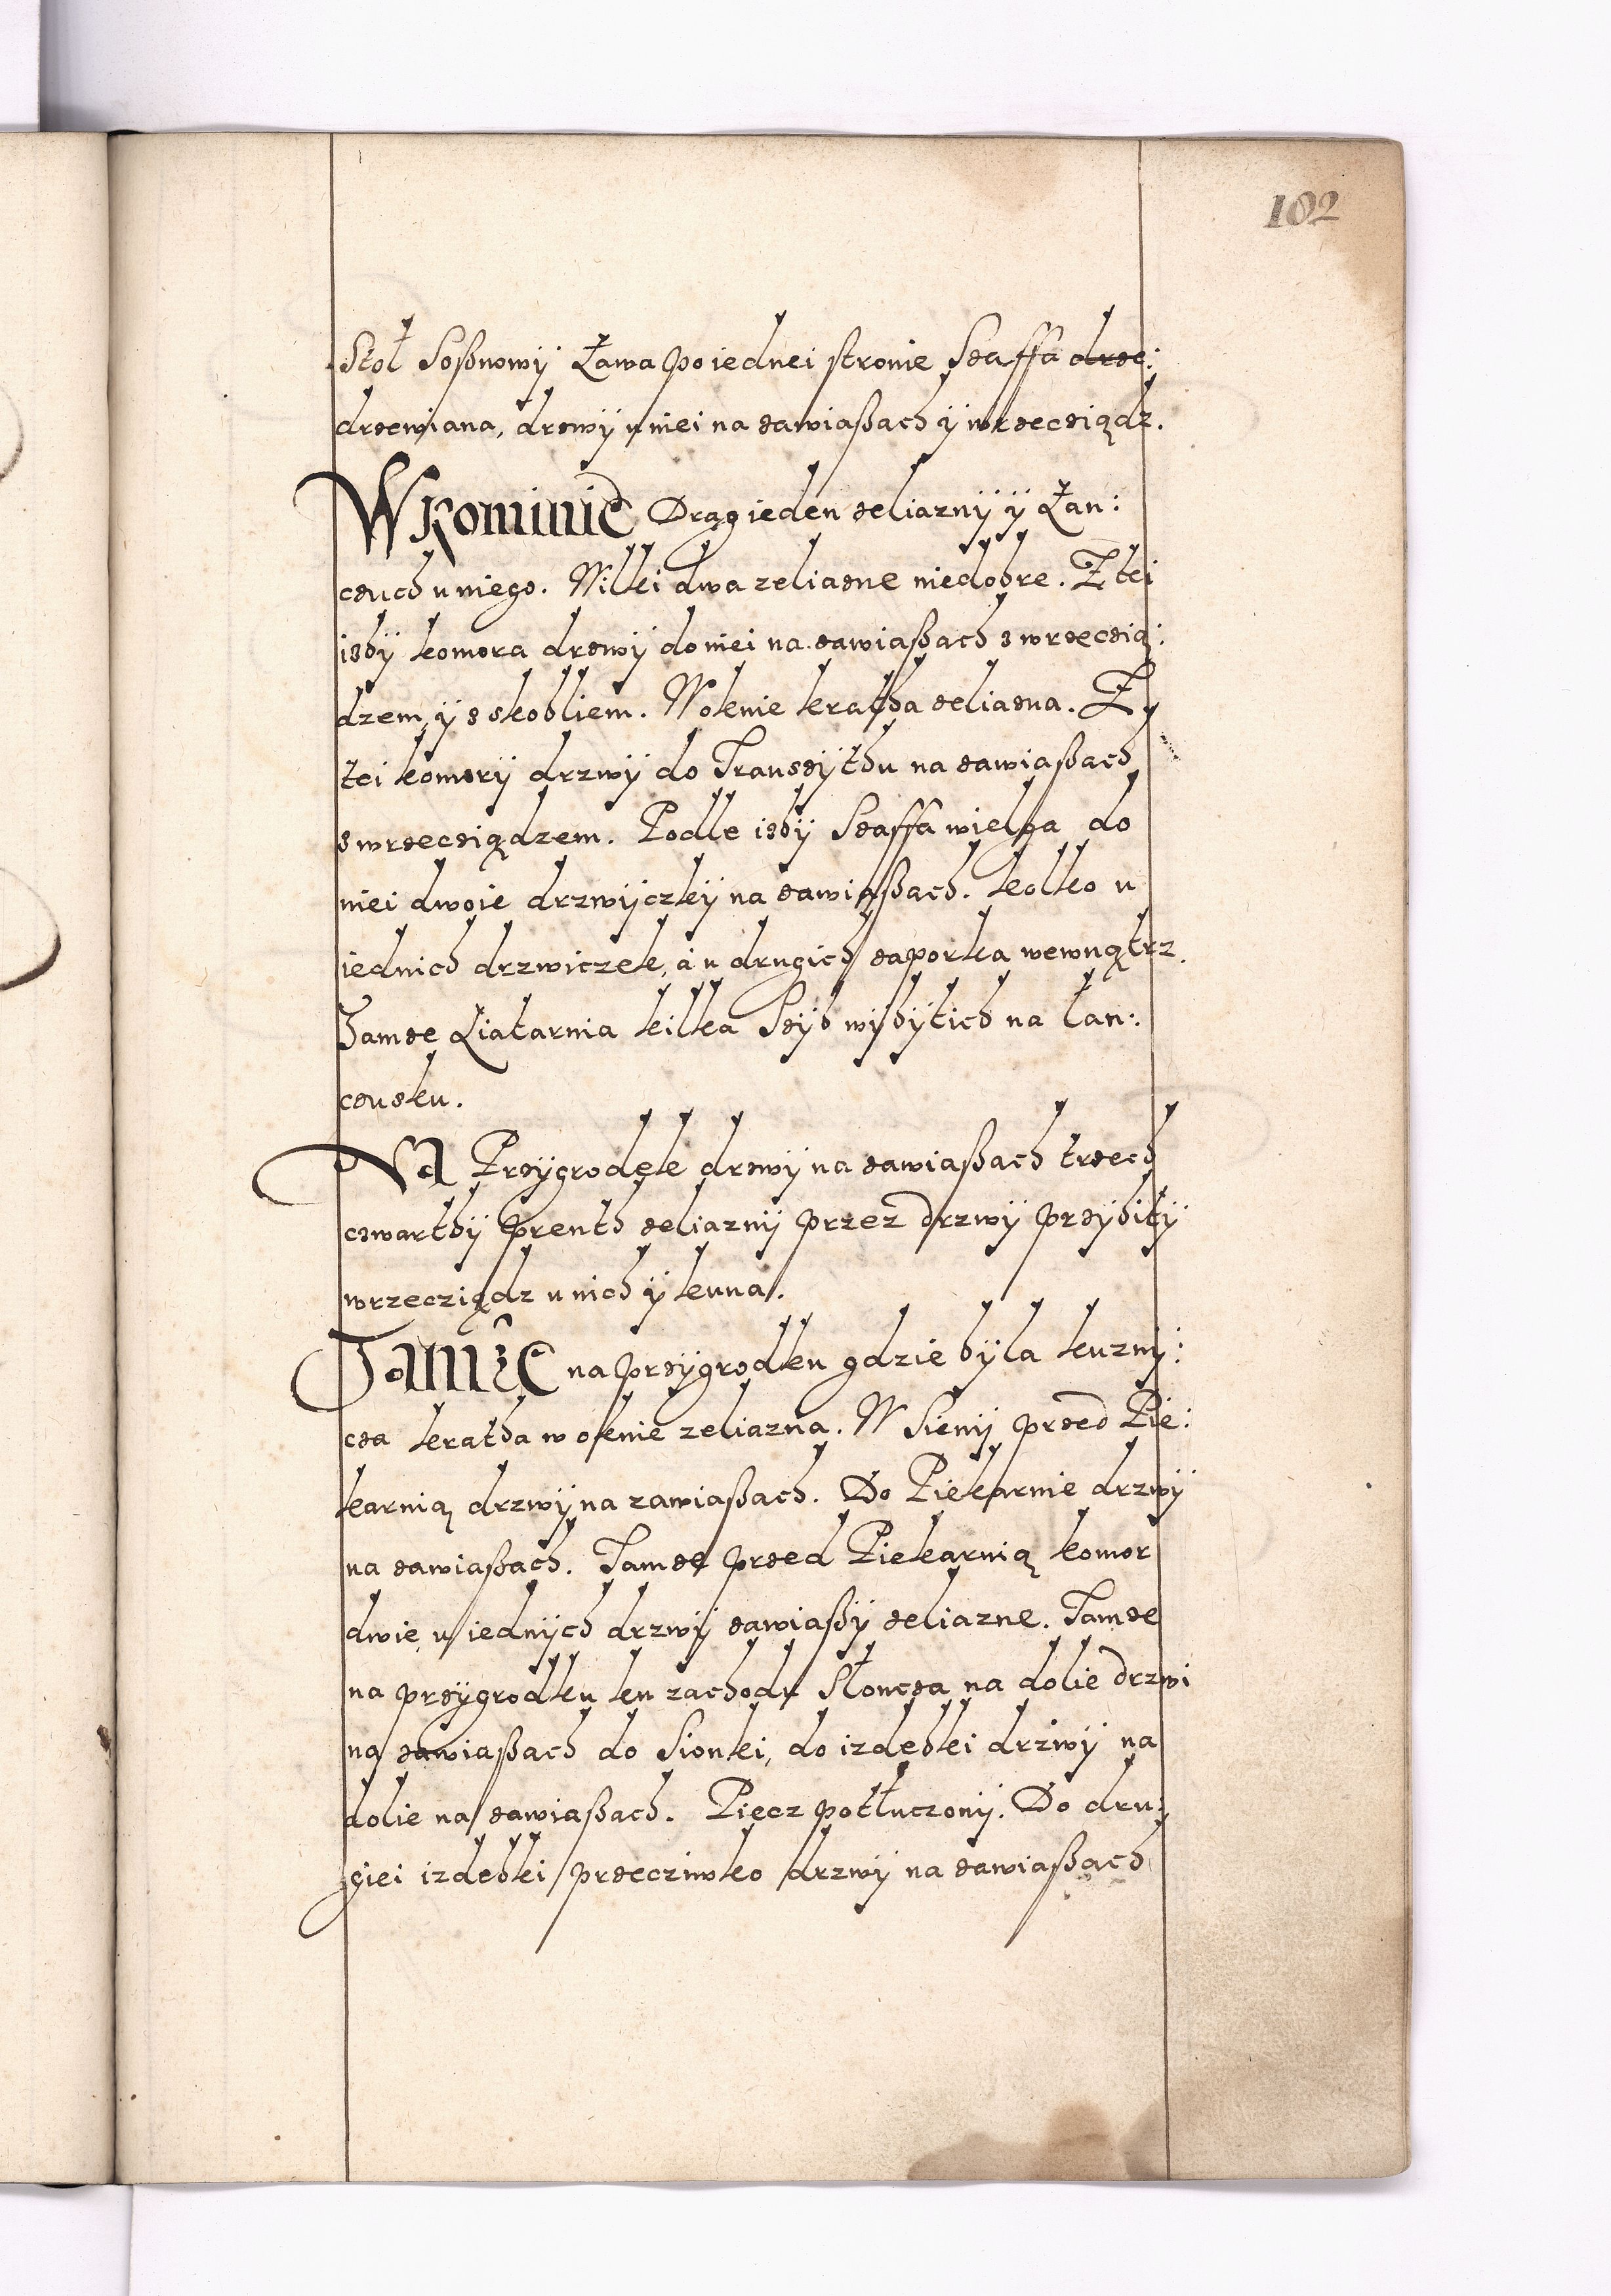 102
Stoł Soßnowÿ Ława po iednei stronie Szaffa drze:
drzewiana, drzwÿ u niei na zawiaßach ÿ wrzecziądz.
W kominie Drąg ieden zeliaznÿ ÿ Łan:
czuch u niego. Wilki dwa zeliazne niedobre. Z tei
izbÿ komora drzwÿ do niei na zawiaßach z wrzeczią:
dzem, ÿ z skobliem. W oknie kratha zeliazna. Z
tei komorÿ drzwÿ do Transzÿthu na zawiaßach
z wrzecziądzem. Podle izbÿ Szaffa wielga do
niei dwoie drzwÿczkÿ na zawiaßach. kolko u
iednich drzwiczek, a u drugich zaporka wewnątrz.
Tamze Liatarnia kilka Szÿb wÿbÿtich na łan:
czusku.
Na Przÿgrodek drzwÿ na zawiaßach trzech
czwarthÿ prenth zeliaznÿ przez drzwÿ przÿbitÿ
wrzecziądz u nich ÿ kuna.
Tamże na przÿgrodku gdzie bÿla kuznÿ:
cza kratha w oknie zeliazna. W Sienÿ przed Pie:
karnią drzwÿ na zawiaßach. Do Piekarnie drzwÿ
na zawiaßach. Tamze przed Piekarnią komor
dwie, u iednÿch drzwÿ zawiaßÿ zeliazne. Tamze
na przÿgrodku ku zachodu Słoncza na dolie drzwi
na zawiaßach do Sionki, do izdebki drzwÿ na
dolie na zawiaßach. Piecz potłuczonÿ. Do dru:
giei izdebki przecziwko drzwÿ na zawiaßach